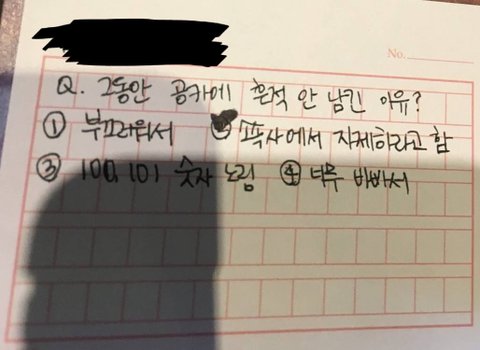 No.
Q. 그동안 공카에 흔적 안 남긴 이유?
① 부끄러워서 ② 소속사에서 자제하라고 함
③ 100, 101 숫자 노림 ④ 너무 바빠서